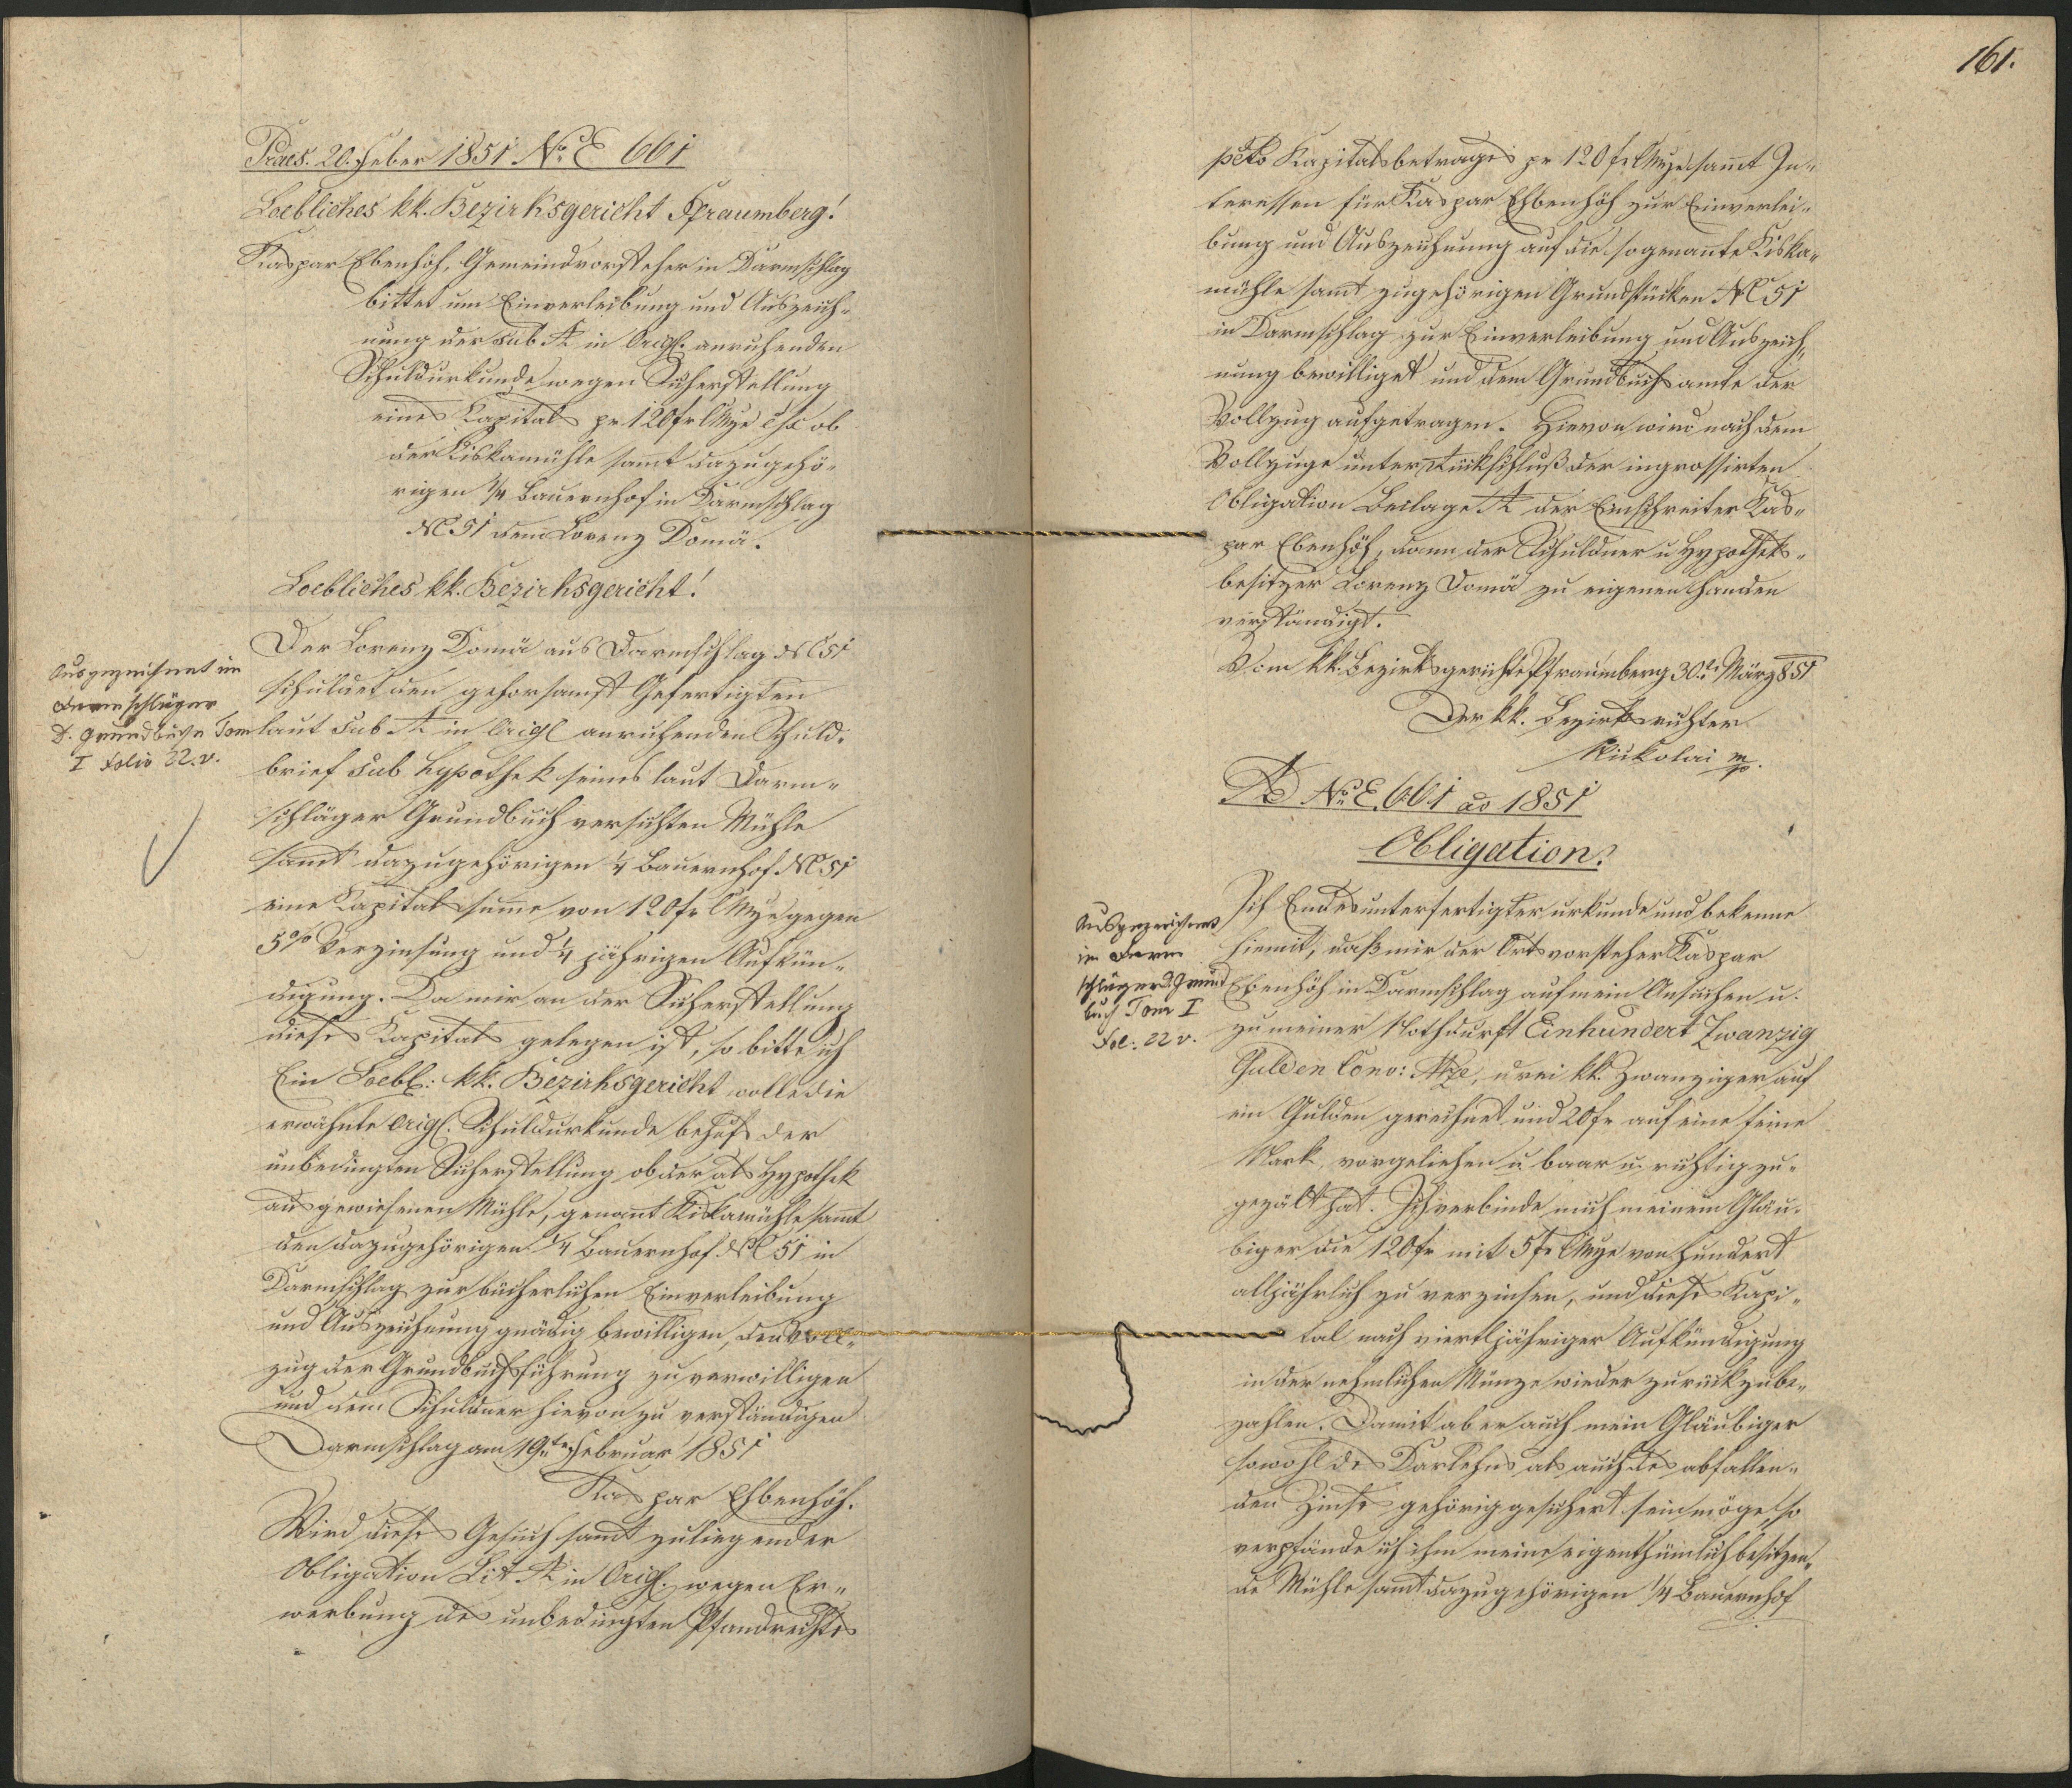 Praes. 20. Feber 1851 No. E 661
Loebliches kk. Bezirksgericht Pfraumberg!
Kaspar Ebenhöh, Gemeindvorsteher in Darmschlag
bittet um Einverleibung und Auszeich-
nung der sub A in Origl. anruhenden
Schuldurkunde wegen Sicherstellung
eines Kapitals pr 120 fr CMze ob
der Kiskamühle samt dazugehö-
rigen 1/4 Bauernhof in Darmschlag
NC 51 dem Lorenz Domä.
Loebliches kk. Bezirksgericht!
Der Lorenz Domä aus Darmschlag NC 51
schuldet den gehorsamst Gefertigten
laut sub A in Origl anruhenden Schuld-
brief sub Hypothek seines laut Darm-
schläger Grundbuch versichten Mühle
samt dazugehörigen 1/4 Bauernhof NC 51
eine Kapitalsume von 120 fr CMze gegen
5% Verzinsung und 1/4 jährigen Aufkün-
digung. Da mir an der Sicherstellung
dieses Kapitals gelegen ist, so bitte ich
Ein Loebl: kk. Bezirksgericht wolle die
erwähnte Origl. Schuldurkunde behufs der
unbedingten Sicherstellung ob der als Hypothek
ausgewiesenen Mühle, genant Kiskamühle samt
den dazugehörigen 1/4 Bauernhof NC 51 in
Darmschlag zur bücherlichen Einverleibung
und Auszeichnung gnädig bewilligen, den Voll-
zug der Grundbuchsführung zu verwilligen
und dem Schuldner hievon zu verständigen
Darmschlag am 19te Februar 1851
Kaspar Ehbenhöh.
Wird dieses Gesuch samt zuliegender
Obligation Lit A in Origl. wegen Er-
werbung des unbedingten Pfandrechts
Ausgezeichnet im
Darmschläger
D. Grundbuche Tom
I folio 22. v.
161.
pcto Kapitalsbetrages pr 120 fr CMze samt In-
teressen für Kaspar Ehbenhöh zur Einverlei-
bung und Auszeichnung auf die sogenante Kiska-
mühle samt zugehörigen Grundstücken NC 51
in Darmschlag zur Einverleibung und Auszeich-
nung bewilliget und dem Grundbuchsamte der
Vollzug aufgetragen. Hievon wird nach dem
Vollzuge unter Rückschluß der ingrossirten
Obligation Beilage A der Einschreiter Kas-
par Ebenhöh, dann der Schuldner u Hypotheks-
besitzer Lorenz Domä zu eigenen Handen
verständigt.
Vom kk. Bezirksgerichte Pfraumberg 30. März 851
Der kk. Bezirksrichter
Nickolai mp.
AD No. E. 661 ao 1851
Obligation.
Ich Endesunterfertigter urkunde und bekenne
hiemit, daß mir der Ortsvorsteher Kaspar
Ebenhöh in Darmschlag auf mein Ansuchen u.
zu meiner Nothdurft Einhundert Zwanzig
Gulden Conv: Mze, drei kk. Zwanziger auf
ein Gulden gerechnet und 20 fr auf eine feine
Mark, vorgeliehen u. baar u. richtig zu-
gezält hat. Ich verbinde mich meinem Gläu-
biger die 120 fr mit 5 fr CMze von Hundert
alljährlich zu verzinsen, und dieses Kapi-
tal nach vierteljähriger Aufkündigung
in der nehmlichen Münze wieder zurückzube-
zahlen. Damit aber auch mein Gläubiger
sowohl des Darlehns als auch des abfallen-
den Zinses gehörig gesichert sein möge, so
verpfände ich ihm meine eigenthümlich besitzen-
de Mühle samt dazugehörigen 1/4 Bauernhof
Ausgezeichnet
in Darm
schläger D. Grund
buch Tom I
Fol: 22 v.